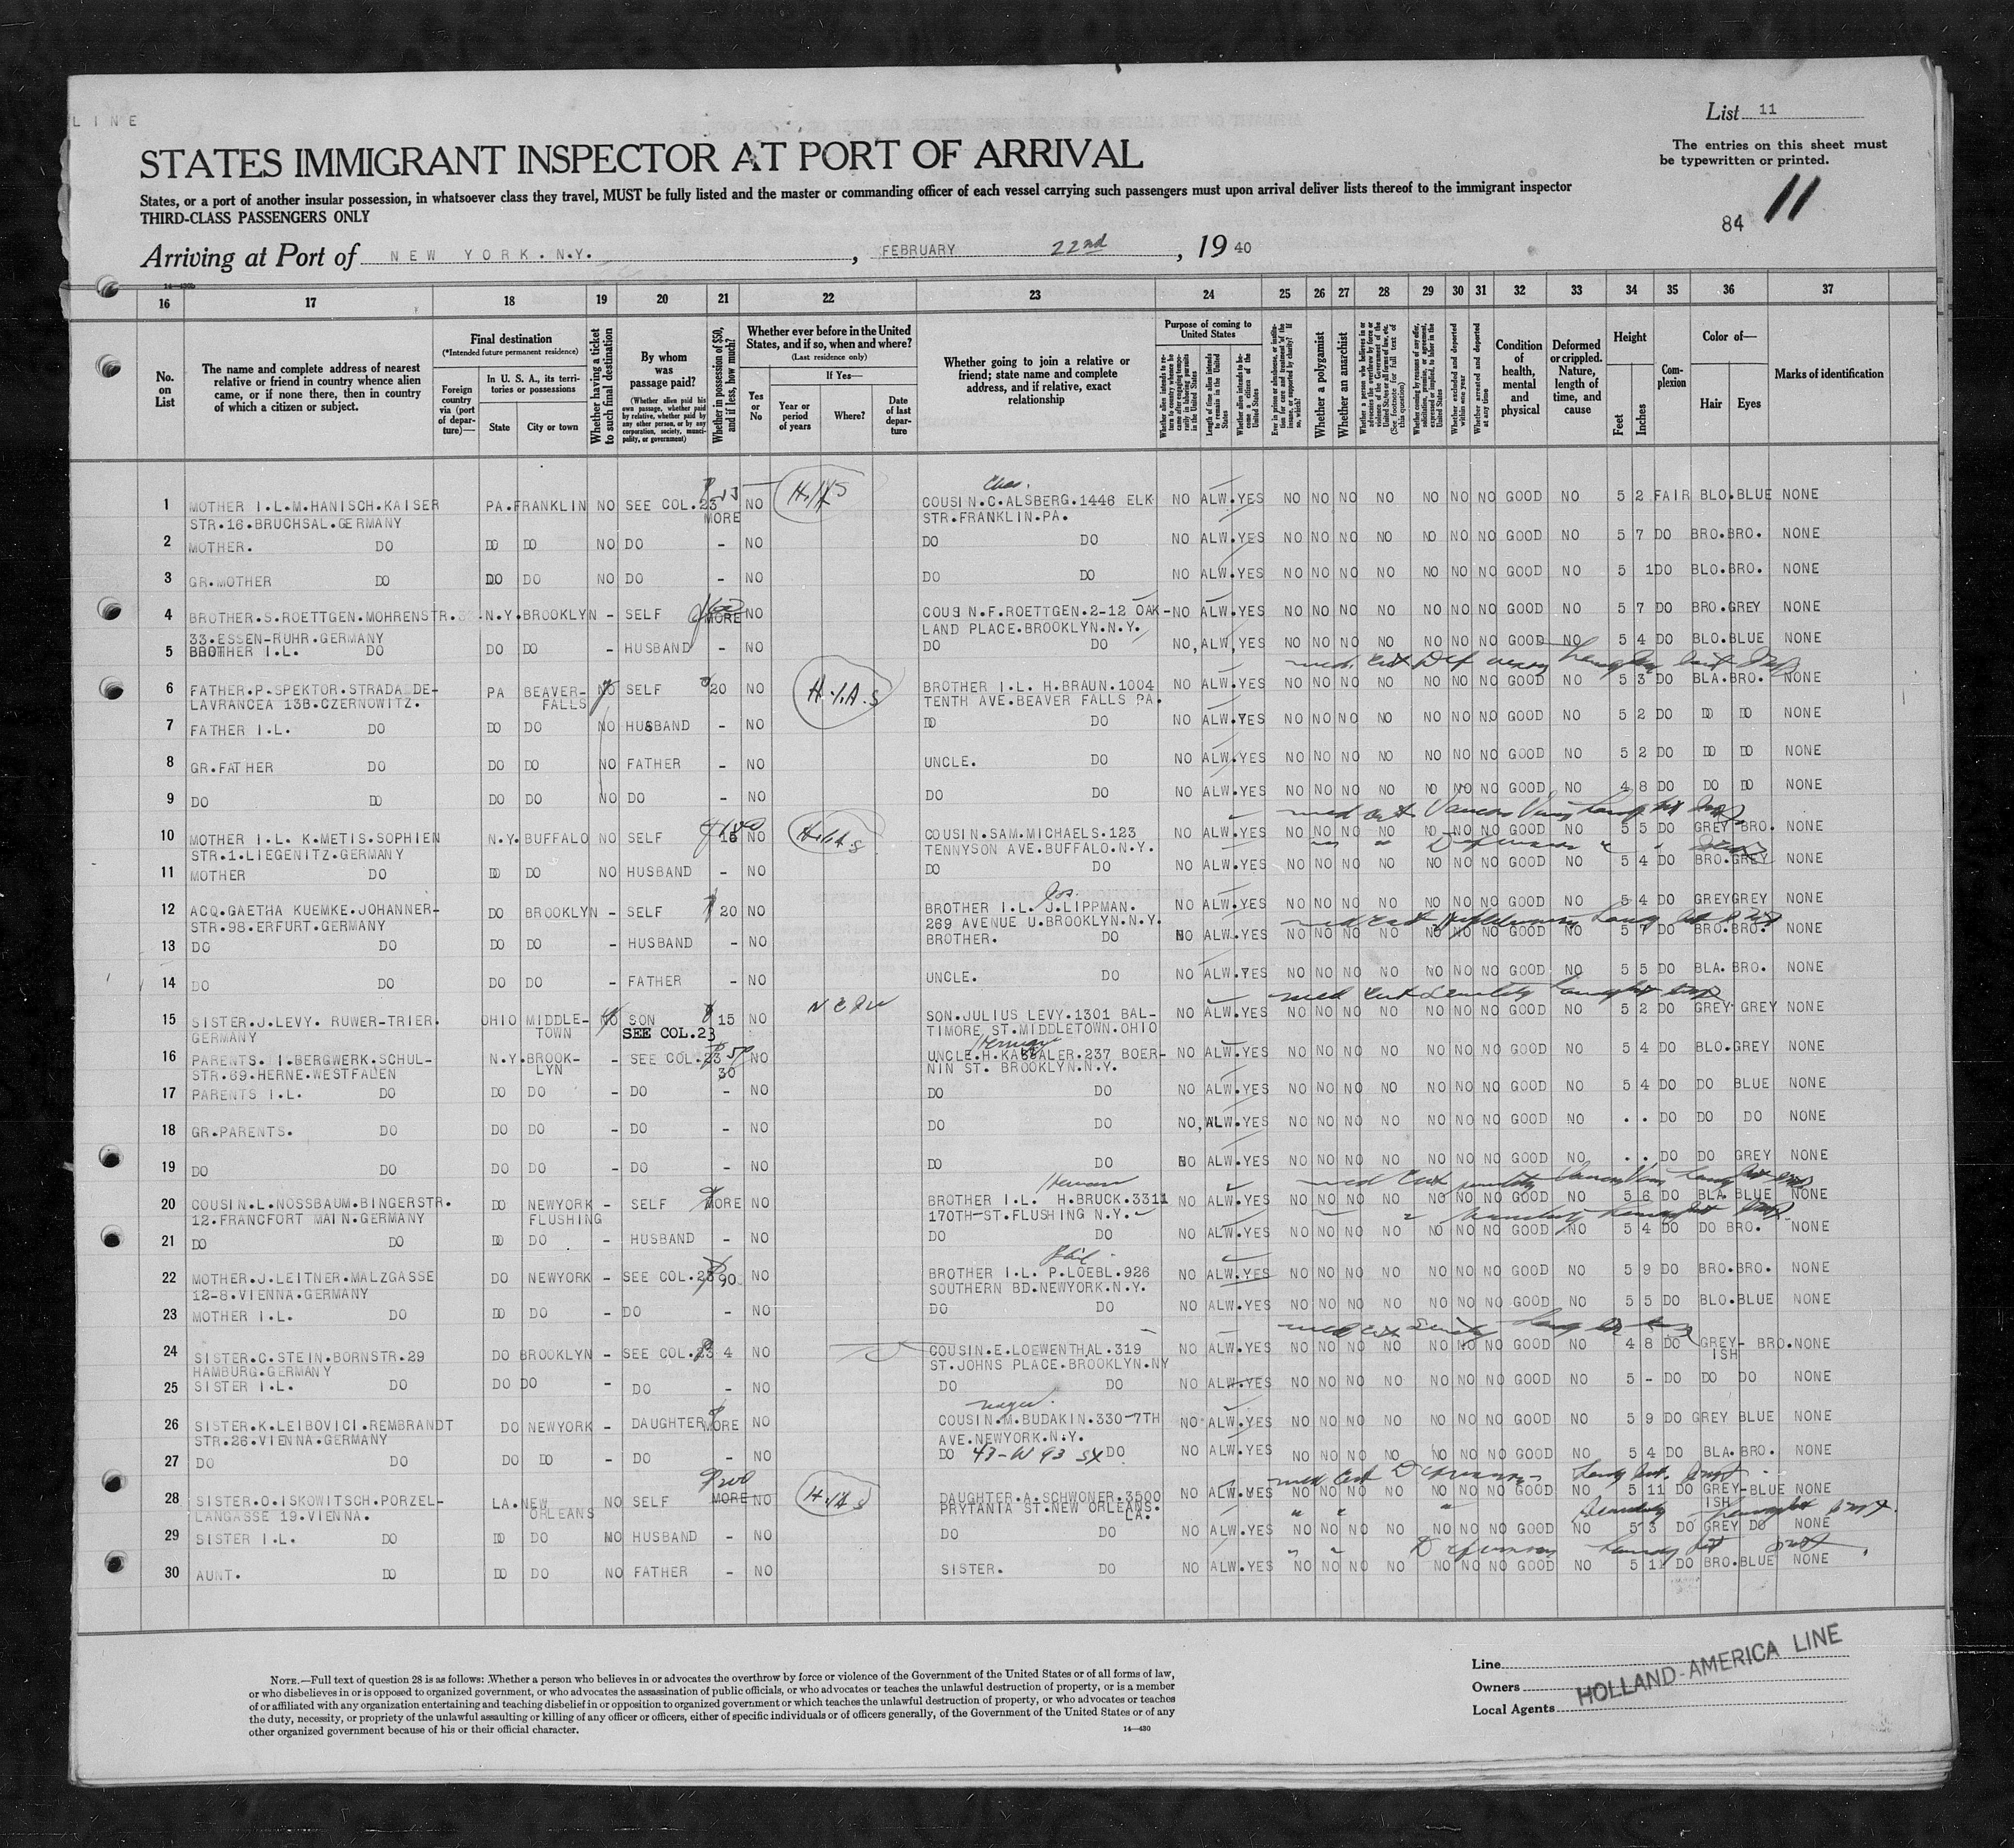 LINE
List 11
STATES IMMIGRANT INSPECTOR AT PORT OF ARRIVAL
The entries on this sheet must
be typewritten or printed.
States, or a port of another insular possession, in whatsoever class they travel, MUST be fully listed and the master or commanding officer of each vessel carrying such passengers must upon arrival deliver lists thereof to the immigrant inspector
THIRD-CLASS PASSENGERS ONLY
84 11
Arriving at Port of NEW YORK.N.Y., FEBRUARY 22nd, 19 40
16 17 18 19 20 21 22 23 24 25 26 27 28 29 30 31 32 33 34 35 36 37
No. on List
The name and complete address of nearest relative or friend in country whence alien came, or if none there, then in country of which a citizen or subject.
Final destination
(*Intended future permanent residence)
Foreign country via (port of departure)—
In U. S. A., its territories or possessions
State
City or town
Whether having a ticket to such final destination
By whom was passage paid?
(Whether alien paid his own passage, whether paid by relative, whether paid by any other person, or by any corporation, society, municipality, or government)
Whether in possession of $50, and if less, how much?
Whether ever before in the United States, and if so, when and where?
(Last residence only)
Yes or No
If Yes—
Year or period of years
Where?
Date of last departure
Whether going to join a relative or friend; state name and complete address, and if relative, exact relationship
Purpose of coming to United States
Whether alien intends to return to country whence he came after engaging temporarily in laboring pursuits in the United States
Length of time alien intends to remain in the United States
Whether alien intends to become a citizen of the United States
Ever in prison or almshouse, or institution for care and treatment of the insane, or supported by charity? If so, which?
Whether a polygamist
Whether an anarchist
Whether a person who believes in or advocates the overthrow by force or violence of the Government of the United States or all forms of law, etc. (See footnote for full text of this question)
Whether coming by reasons of any offer, solicitation, promise, or agreement, expressed or implied, to labor in the United States
Whether excluded and deported within one year
Whether arrested and deported at any time
Condition of health, mental and physical
Deformed or crippled. Nature, length of time, and cause
Height
Feet
Inches
Complexion
Color of—
Hair
Eyes
Marks of identification
1 MOTHER I.L.M.HANISCH.KAISER PA. FRANKLIN NO SEE COL.23 MORE NO H.I.A.S COUSIN.C.ALSBERG.1446 ELK NO ALW.YES NO NO NO NO NO NO NO GOOD NO 5 2 FAIR BLO.BLUE NONE
STR.16.BRUCHSAL.GERMANY STR.FRANKLIN.PA.
2 MOTHER. DO DO DO NO DO - NO DO DO NO ALW.YES NO NO NO NO NO NO NO GOOD NO 5 7 DO BRO.BRO. NONE
3 GR.MOTHER DO DO DO NO DO - NO DO DO NO ALW.YES NO NO NO NO NO NO NO GOOD NO 5 1 DO BLO.BRO. NONE
4 BROTHER.S.ROETTGEN.MOHRENSTR. N.Y. BROOKLYN - SELF MORE NO COUSIN.F.ROETTGEN.2-12 OAK- NO ALW.YES NO NO NO NO NO NO NO GOOD NO 5 7 DO BRO.GREY NONE
33.ESSEN-RUHR.GERMANY LAND PLACE.BROOKLYN.N.Y.
5 BROTHER I.L. DO DO DO - HUSBAND - NO DO DO NO, ALW, YES NO NO NO NO NO NO NO GOOD NO 5 4 DO BLO.BLUE NONE
6 FATHER.P.SPEKTOR.STRADA DE- PA BEAVER- NO SELF 20 NO H.I.A.S BROTHER I.L. H.BRAUN.1004 NO ALW.YES NO NO NO NO NO NO NO GOOD NO 5 3 DO BLA.BRO. NONE
LAVRANCEA 13B.CZERNOWITZ. FALLS TENTH AVE.BEAVER FALLS PA.
7 FATHER I.L. DO DO DO NO HUSBAND - NO DO DO NO ALW.YES NO NO NO NO NO NO NO GOOD NO 5 2 DO DO DO NONE
8 GR.FATHER DO DO DO NO FATHER - NO UNCLE. DO NO ALW.YES NO NO NO NO NO NO NO GOOD NO 5 2 DO DO DO NONE
9 DO DO DO DO NO DO - NO DO DO NO ALW.YES NO NO NO NO NO NO NO GOOD NO 4 8 DO DO DO NONE
10 MOTHER I.L. K.METIS.SOPHIEN N.Y. BUFFALO NO SELF 15 NO H.I.A.S COUSIN.SAM.MICHAELS.123 NO ALW.YES NO NO NO NO NO NO NO GOOD NO 5 5 DO GREY BRO. NONE
STR.1.LIEGENITZ.GERMANY TENNYSON AVE.BUFFALO.N.Y.
11 MOTHER DO DO DO NO HUSBAND - NO DO DO NO ALW.YES NO NO NO NO NO NO NO GOOD NO 5 4 DO BRO.GREY NONE
12 ACQ.GAETHA KUEMKE.JOHANNER- DO BROOKLYN - SELF 20 NO BROTHER I.L. J.LIPPMAN. NO ALW.YES NO NO NO NO NO NO NO GOOD NO 5 4 DO GREY GREY NONE
STR.98.ERFURT.GERMANY 269 AVENUE U.BROOKLYN.N.Y.
13 DO DO DO DO - HUSBAND - NO BROTHER. DO NO ALW.YES NO NO NO NO NO NO NO GOOD NO 5 7 DO BRO.BRO. NONE
14 DO DO DO DO - FATHER - NO UNCLE. DO NO ALW.YES NO NO NO NO NO NO NO GOOD NO 5 5 DO BLA. BRO. NONE
15 SISTER.J.LEVY. RUWER-TRIER. OHIO MIDDLE- NO SON 15 NO SON.JULIUS LEVY.1301 BAL- NO ALW.YES NO NO NO NO NO NO NO GOOD NO 5 2 DO GREY GREY NONE
GERMANY TOWN SEE COL.23 TIMORE ST.MIDDLETOWN.OHIO
16 PARENTS. I.BERGWERK.SCHUL- N.Y. BROOK- - SEE COL.23 50 NO UNCLE.H.KASSALER.237 BOER- NO ALW.YES NO NO NO NO NO NO NO GOOD NO 5 4 DO BLO.GREY NONE
STR.69.HERNE.WESTFALEN LYN 30 NIN ST. BROOKLYN.N.Y.
17 PARENTS I.L. DO DO DO - DO - NO DO DO NO ALW.YES NO NO NO NO NO NO NO GOOD NO 5 4 DO DO BLUE NONE
18 GR.PARENTS. DO DO DO - DO - NO DO DO NO, ALW.YES NO NO NO NO NO NO NO GOOD NO . . DO DO DO NONE
19 DO DO DO DO - DO - NO DO DO NO ALW.YES NO NO NO NO NO NO NO GOOD NO . . DO DO GREY NONE
20 COUSIN.L.NOSSBAUM.BINGERSTR. DO NEWYORK - SELF MORE NO BROTHER I.L. H.BRUCK.3311 NO ALW.YES NO NO NO NO NO NO NO GOOD NO 5 6 DO BLA.BLUE NONE
12.FRANCFORT MAIN.GERMANY FLUSHING 170TH-ST.FLUSHING N.Y.
21 DO DO DO DO - HUSBAND - NO DO DO NO ALW.YES NO NO NO NO NO NO NO GOOD NO 5 4 DO DO BRO. NONE
22 MOTHER.J.LEITNER.MALZGASSE DO NEWYORK - SEE COL.23 90 NO BROTHER I.L. P.LOEBL.926 NO ALW.YES NO NO NO NO NO NO NO GOOD NO 5 9 DO BRO.BRO. NONE
12-8.VIENNA.GERMANY SOUTHERN BD.NEWYORK.N.Y.
23 MOTHER I.L. DO DO DO - DO - NO DO DO NO ALW.YES NO NO NO NO NO NO NO GOOD NO 5 5 DO BLO.BLUE NONE
24 SISTER.C.STEIN.BORNSTR.29 DO BROOKLYN - SEE COL.23 4 NO COUSIN.E.LOEWENTHAL.319 NO ALW.YES NO NO NO NO NO NO NO GOOD NO 4 8 DO GREY- BRO. NONE
HAMBURG.GERMANY ST.JOHNS PLACE.BROOKLYN.NY ISH
25 SISTER I.L. DO DO DO - DO - NO DO DO NO ALW.YES NO NO NO NO NO NO NO GOOD NO 5 - DO DO DO NONE
26 SISTER.K.LEIBOVICI.REMBRANDT DO NEWYORK - DAUGHTER MORE NO COUSIN.M.BUDAKIN.330-7TH NO ALW.YES NO NO NO NO NO NO NO GOOD NO 5 9 DO GREY BLUE NONE
STR.26.VIENNA.GERMANY AVE.NEWYORK.N.Y.
27 DO DO DO DO - DO - NO DO 43-W 93 St DO NO ALW.YES NO NO NO NO NO NO NO GOOD NO 5 4 DO BLA.BRO. NONE
28 SISTER.O.ISKOWITSCH.PORZEL- LA. NEW NO SELF 200 MORE NO H.I.A.S DAUGHTER.A.SCHWONER.3500 NO ALW.YES NO NO NO NO NO NO NO GOOD NO 5 11 DO GREY-BLUE NONE
LANGASSE 19.VIENNA. ORLEANS PRYTANIA ST.NEW ORLEANS. LA. ISH
29 SISTER I.L. DO DO DO NO HUSBAND - NO DO DO NO ALW.YES NO NO NO NO NO NO NO GOOD NO 5 3 DO GREY DO NONE
30 AUNT. DO DO DO NO FATHER - NO SISTER. DO NO ALW.YES NO NO NO NO NO NO NO GOOD NO 5 11 DO BRO.BLUE NONE
NOTE.—Full text of question 28 is as follows: Whether a person who believes in or advocates the overthrow by force or violence of the Government of the United States or of all forms of law,
or who disbelieves in or is opposed to organized government, or who advocates the assassination of public officials, or who advocates or teaches the unlawful destruction of property, or is a member
of or affiliated with any organization entertaining and teaching disbelief in or opposition to organized government or which teaches the unlawful destruction of property, or who advocates or teaches
the duty, necessity, or propriety of the unlawful assaulting or killing of any officer or officers, either of specific individuals or of officers generally, of the Government of the United States or of any
other organized government because of his or their official character.
14—430
Line
Owners
Local Agents
HOLLAND-AMERICA LINE